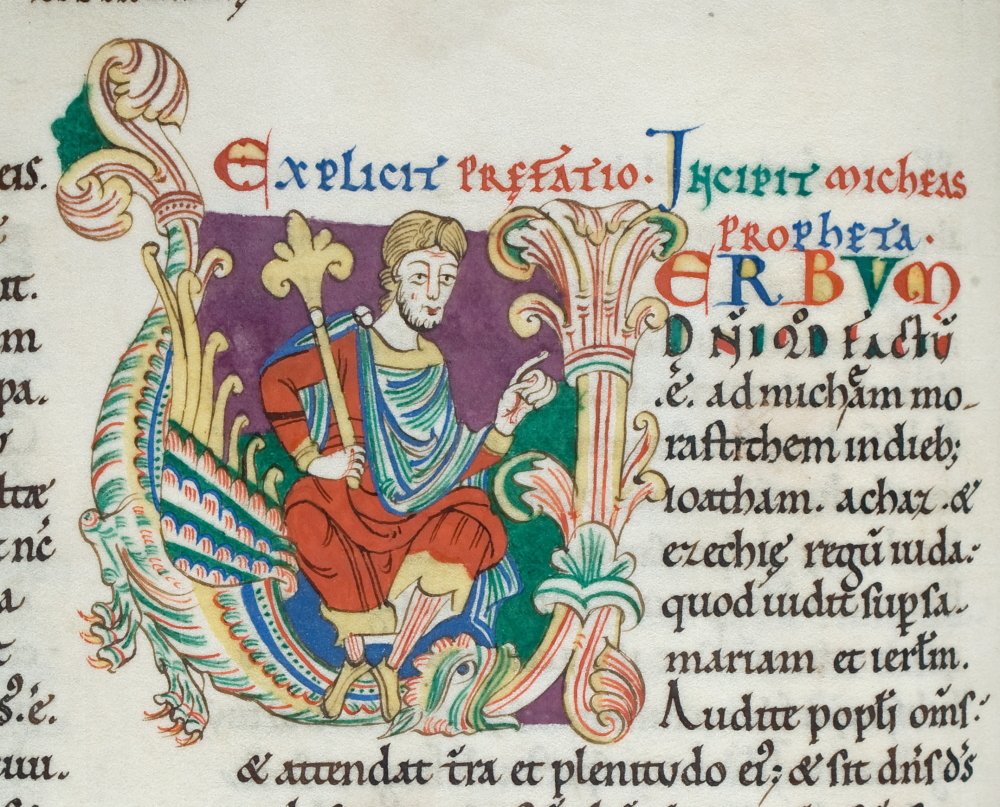 Explicit prefatio. Incipit micheas
propheta.
VERBUM
DÑI QD FACTŪ
.ē. ad micham mo-
rastithem in dieb;
ioatham. achaz. &
ezechię regū iuda:
quod uidit sup sa-
mariam et ierlm.
Audite popli oms:
& attendat tra et plenitudo ei; & sit dns ds
eis.
ut.
um
pa.
ltæ
nc
a
s.ē.
uu.